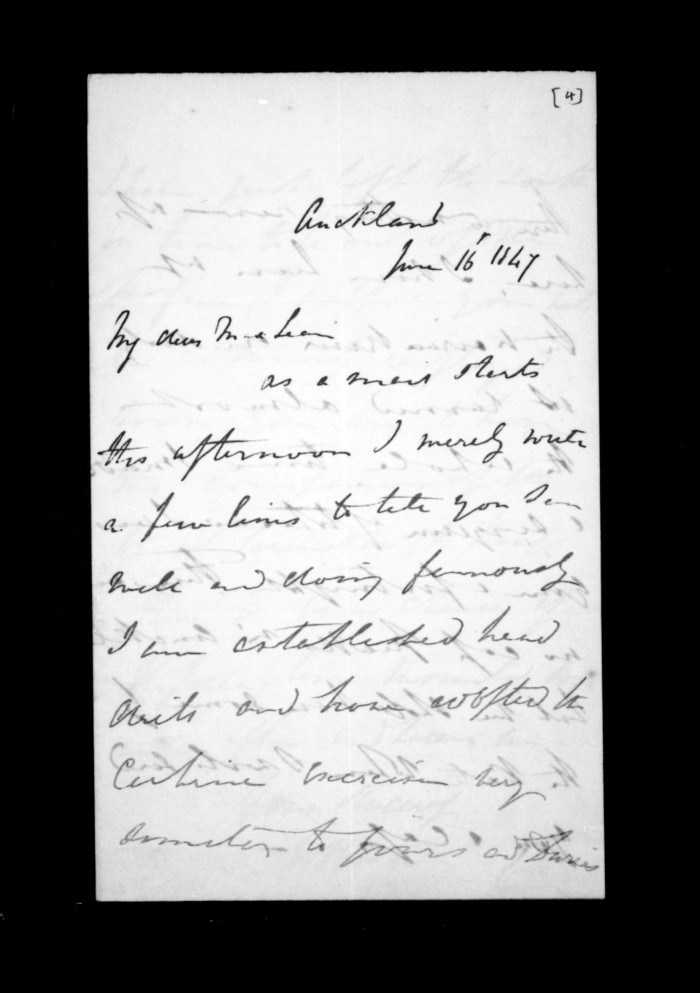 [4]
Auckland
June 16 1847
My dear McLean
as a mail starts
this afternoon I merely write
a few lines to tell you I am
well and doing famously
I am established head
drill and have adopted the
Carbine exercise very
similar to yours at